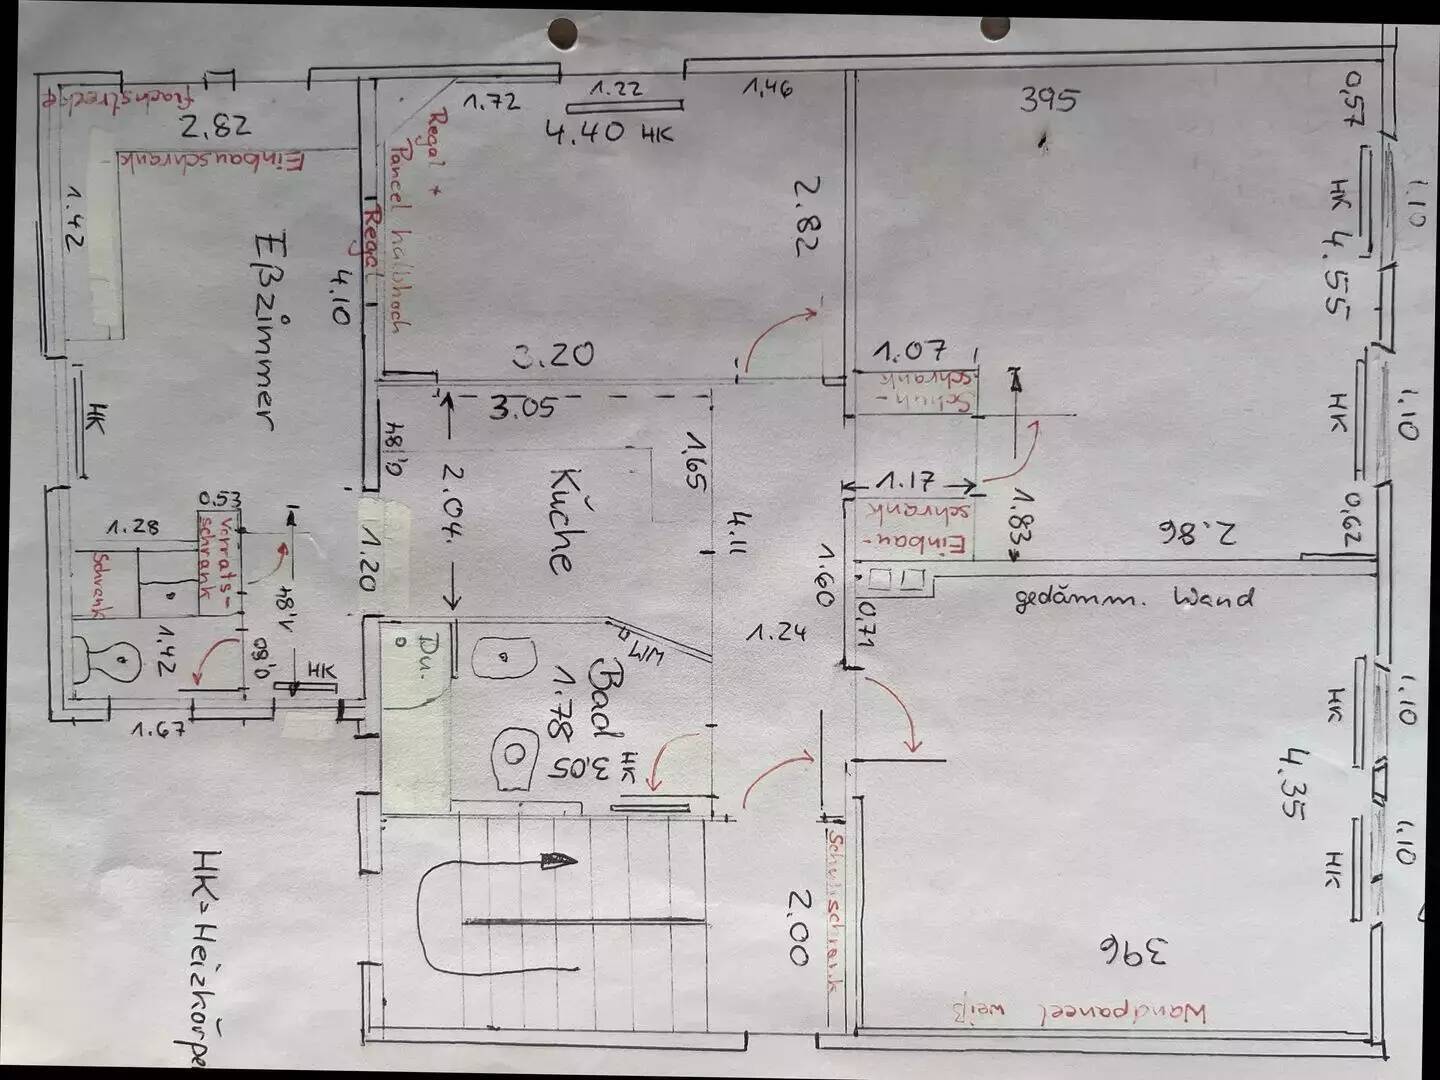 flachstrecke
2,82
Einbauschrank
1.42
Eßzimmer
4.10
HK
1.72
1.22
1,46
4.40 HK
Regal +
Paneel halbhoch
Regal
2.82
3.20
395
0,57
HK
4.55
1.10
1.07
Schuh-
schrank
HK
1.10
3.05
0,84
2.04
1,65
Küche
4.11
1.17
1.83
Einbau-
schrank
2.86
0,62
0.53
1.28
Vorrats-
schrank
Schrank
1,84
1.20
1.60
0,71
gedämm. Wand
1.42
0,80
HK
1.67
Du.
WM
Bad
1.78
3,05
HK
1.24
HK
1.10
4.35
HK
1.10
Schuhschrank
2.00
396
Wandpaneel weiß
HK=Heizkörpe